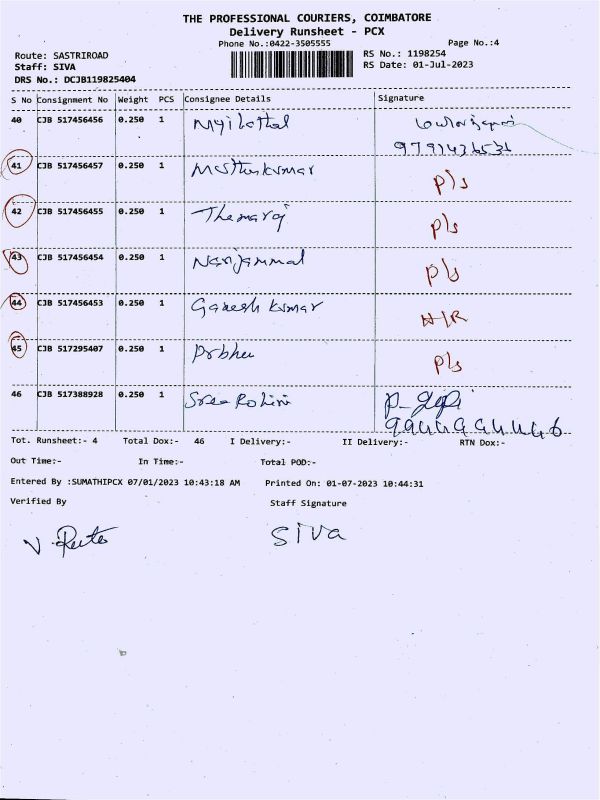 THE PROFESSIONAL COURIERS, COIMBATORE
Delivery Runsheet - PCX
Phone No.:0422-3505555 Page No.:4
Route: SASTRIROAD RS No.: 1198254
Staff: SIVA RS Date: 01-Jul-2023
DRS No.: DCJB119825404
S No Consignment No Weight PCS Consignee Details Signature
40 CJB 517456456 0.250 1 Myilathal
9791436531
41 CJB 517456457 0.250 1 Muthukumar P/s
42 CJB 517456455 0.250 1 P/s
43 CJB 517456454 0.250 1 Nanjammal P/s
44 CJB 517456453 0.250 1 Ganesh Kumar N/R
45 CJB 517295407 0.250 1 Prbhu P/s
46 CJB 517388928 0.250 1 Sree Rohini
Tot. Runsheet:- 4 Total Dox:- 46 I Delivery:- II Delivery:- RTN Dox:-
Out Time:- In Time:- Total POD:-
Entered By :SUMATHIPCX 07/01/2023 10:43:18 AM Printed On: 01-07-2023 10:44:31
Verified By Staff Signature
SIVA